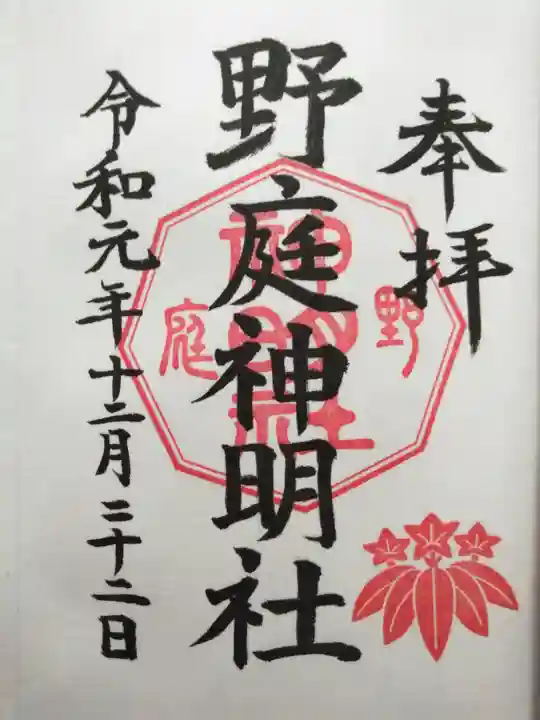 奉拝
野庭神明社
令和元年十二月二十二日
野
庭
神明社